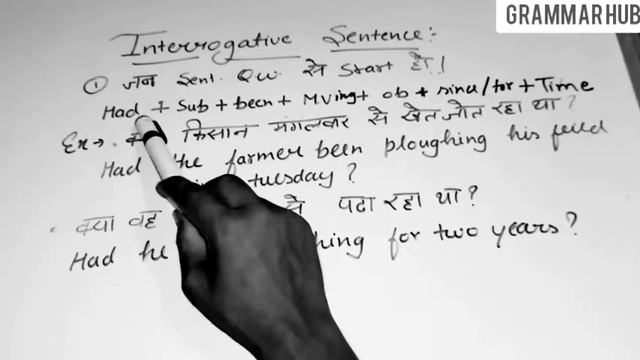 GRAMMARHUB
Interrogative Sentence:-
① जब Sent. Q.W. से Start हो!!
Had + Sub + been + MVing + ob + since/for + Time
Ex → किसान मंगलवार से खेत जोत रहा था?
Had the farmer been ploughing his feild
tuesday?
क्या वह से पढा रहा था?
Had he for two years?